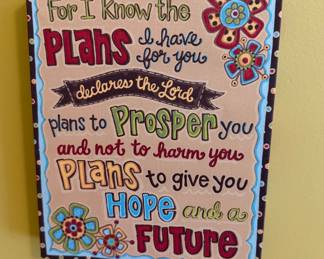 For I Know the
PLANS I have
for you
declares the Lord
plans to PROSPER you
and not to harm you
PLANS to give you
HOPE and a
FUTURE